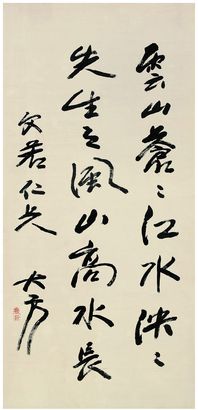 雲山蒼〻江水泱〻
先生之風山高水長
文若仁兄 大方